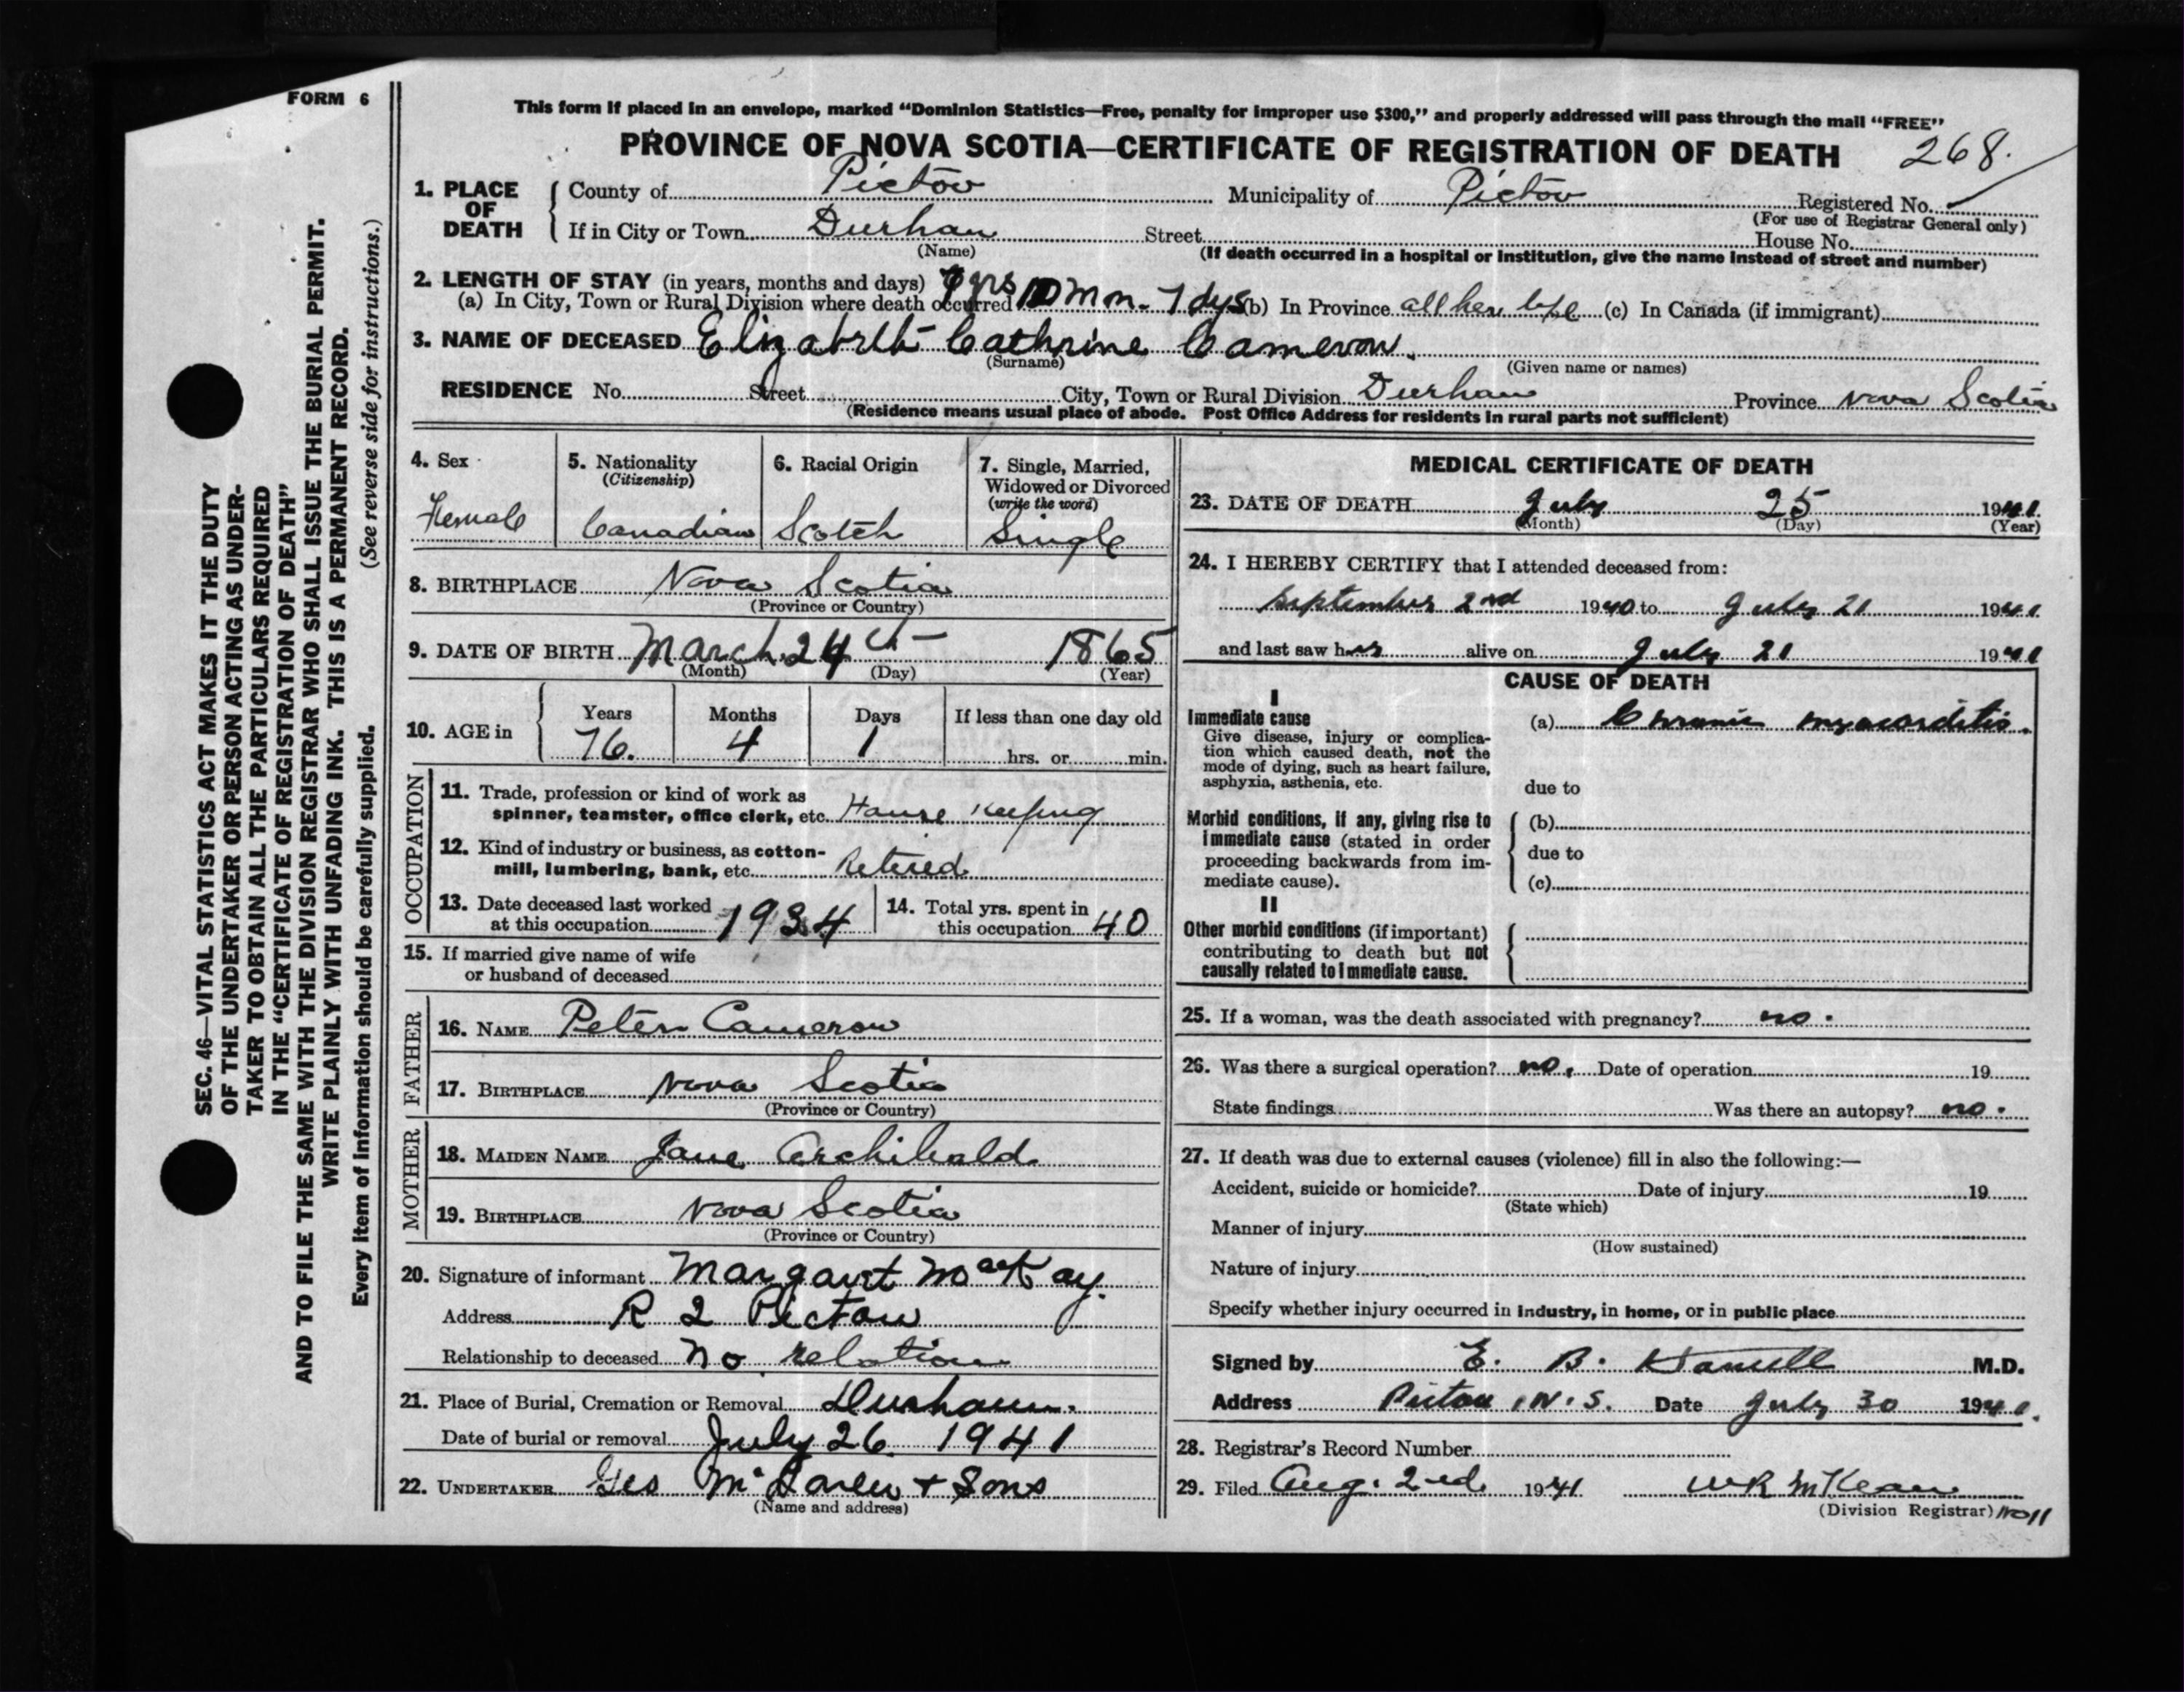 FORM 6
This form if placed in an envelope, marked "Dominion Statistics—Free, penalty for improper use $300," and properly addressed will pass through the mail "FREE"
PROVINCE OF NOVA SCOTIA—CERTIFICATE OF REGISTRATION OF DEATH 268.
1. PLACE OF DEATH County of Pictou Municipality of Pictou Registered No.
(For use of Registrar General only)
If in City or Town Durham Street House No.
(Name) (If death occurred in a hospital or institution, give the name instead of street and number)
2. LENGTH OF STAY (in years, months and days)
(a) In City, Town or Rural Division where death occurred yrs 10 mon. 7 dys (b) In Province all her life (c) In Canada (if immigrant)
3. NAME OF DECEASED Elizabeth Cathrine Cameron.
(Surname) (Given name or names)
RESIDENCE No. Street City, Town or Rural Division Durham Province Nova Scotia
(Residence means usual place of abode. Post Office Address for residents in rural parts not sufficient)
4. Sex Female
5. Nationality (Citizenship) Canadian
6. Racial Origin Scotch
7. Single, Married, Widowed or Divorced (write the word) Single
8. BIRTHPLACE Nova Scotia
(Province or Country)
9. DATE OF BIRTH March 24th 1865
(Month) (Day) (Year)
10. AGE in Years Months Days If less than one day old
76. 4 1 hrs. or min.
OCCUPATION
11. Trade, profession or kind of work as
spinner, teamster, office clerk, etc. House Keeping
12. Kind of industry or business, as cotton-
mill, lumbering, bank, etc. Retired
13. Date deceased last worked
at this occupation 1934
14. Total yrs. spent in
this occupation 40
15. If married give name of wife
or husband of deceased
FATHER
16. NAME Peter Cameron
17. BIRTHPLACE Nova Scotia
(Province or Country)
MOTHER
18. MAIDEN NAME Jane Archibald
19. BIRTHPLACE Nova Scotia
(Province or Country)
20. Signature of informant Margaret MacKay.
Address R 2 Pictou
Relationship to deceased No relation
21. Place of Burial, Cremation or Removal Durham.
Date of burial or removal July 26 1941
22. UNDERTAKER Geo McLaren + Sons
(Name and address)
MEDICAL CERTIFICATE OF DEATH
23. DATE OF DEATH July 25 1941
(Month) (Day) (Year)
24. I HEREBY CERTIFY that I attended deceased from:
September 2nd 1940 to July 21 1941
and last saw her alive on July 21 1941
CAUSE OF DEATH
I
Immediate cause (a) Chronic myocarditis.
Give disease, injury or complica-
tion which caused death, not the
mode of dying, such as heart failure,
asphyxia, asthenia, etc.
due to
Morbid conditions, if any, giving rise to (b)
immediate cause (stated in order
proceeding backwards from im-
mediate cause).
due to
(c)
II
Other morbid conditions (if important)
contributing to death but not
causally related to immediate cause.
25. If a woman, was the death associated with pregnancy? no.
26. Was there a surgical operation? no. Date of operation 19
State findings Was there an autopsy? no.
27. If death was due to external causes (violence) fill in also the following:—
Accident, suicide or homicide? Date of injury 19
(State which)
Manner of injury
(How sustained)
Nature of injury
Specify whether injury occurred in industry, in home, or in public place
Signed by E. B. M.D.
Address Pictou, N.S. Date July 30 1941.
28. Registrar's Record Number
29. Filed Aug. 2nd. 1941 WR McKean
(Division Registrar)
SEC. 46—VITAL STATISTICS ACT MAKES IT THE DUTY
OF THE UNDERTAKER OR PERSON ACTING AS UNDER-
TAKER TO OBTAIN ALL THE PARTICULARS REQUIRED
IN THE "CERTIFICATE OF REGISTRATION OF DEATH"
AND TO FILE THE SAME WITH THE DIVISION REGISTRAR WHO SHALL ISSUE THE BURIAL PERMIT.
WRITE PLAINLY WITH UNFADING INK. THIS IS A PERMANENT RECORD.
Every item of information should be carefully supplied. (See reverse side for instructions.)